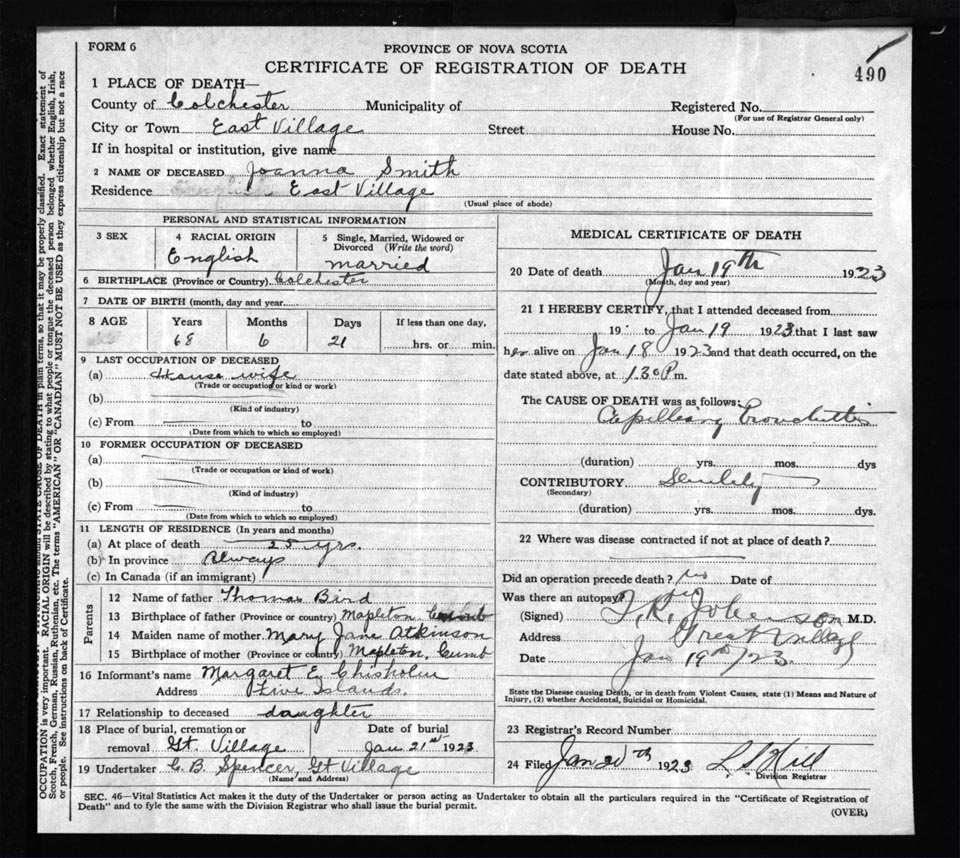 FORM 6
PROVINCE OF NOVA SCOTIA
CERTIFICATE OF REGISTRATION OF DEATH
490
1 PLACE OF DEATH—
County of Colchester Municipality of Registered No.
(For use of Registrar General only)
City or Town East Village Street House No.
If in hospital or institution, give name
2 NAME OF DECEASED Joanna Smith
Residence East Village
(Usual place of abode)
PERSONAL AND STATISTICAL INFORMATION
3 SEX 4 RACIAL ORIGIN 5 Single, Married, Widowed or Divorced (Write the word)
English married
6 BIRTHPLACE (Province or Country) Colchester
7 DATE OF BIRTH (month, day and year)
8 AGE Years Months Days If less than one day,
68 6 21 hrs. or min.
9 LAST OCCUPATION OF DECEASED
(a) House wife
(Trade or occupation or kind or work)
(b)
(Kind of industry)
(c) From to
(Date from which to which so employed)
10 FORMER OCCUPATION OF DECEASED
(a)
(Trade or occupation or kind of work)
(b)
(Kind of industry)
(c) From to
(Date from which to which so employed)
11 LENGTH OF RESIDENCE (In years and months)
(a) At place of death 25 yrs.
(b) In province Always
(c) In Canada (if an immigrant)
Parents
12 Name of father Thomas Bird
13 Birthplace of father (Province or country) Mapleton, Cumb
14 Maiden name of mother Mary Jane Atkinson
15 Birthplace of mother (Province or country) Mapleton, Cumb
16 Informant's name Margaret E. Chisholm
Address Five Islands.
17 Relationship to deceased daughter
18 Place of burial, cremation or Date of burial
removal Gt. Village Jan 21st 1923
19 Undertaker C. B. Spencer, Gt Village
(Name and Address)
MEDICAL CERTIFICATE OF DEATH
20 Date of death Jan 19th 1923
(Month, day and year)
21 I HEREBY CERTIFY, that I attended deceased from
19 to Jan 19 1923 that I last saw
her alive on Jan 18 1923 and that death occurred, on the
date stated above, at 1.30 P m.
The CAUSE OF DEATH was as follows:
Capillary Bronchitis
(duration) yrs. mos. dys
CONTRIBUTORY Senility
(Secondary)
(duration) yrs. mos. dys.
22 Where was disease contracted if not at place of death?
Did an operation precede death? no Date of
Was there an autopsy?
(Signed) T. R. Johnson M.D.
Address Great Village
Date Jan 19th/23.
State the Disease causing Death, or in death from Violent Causes, state (1) Means and Nature of
Injury, (2) whether Accidental, Suicidal or Homicidal.
23 Registrar's Record Number
24 Filed Jan 20th 1923 L S Hill
Division Registrar
SEC. 46—Vital Statistics Act makes it the duty of the Undertaker or person acting as Undertaker to obtain all the particulars required in the "Certificate of Registration of
Death" and to fyle the same with the Division Registrar who shall issue the burial permit.
(OVER)
OCCUPATION is very important. RACIAL ORIGIN will be described by stating to what people or tongue the deceased person belonged whether English, Irish,
Scotch, French, German, Russian, Ruthenian, etc. The terms "AMERICAN" OR "CANADIAN" MUST NOT BE USED as they express citizenship but not a race
or people. See instructions on back of Certificate.